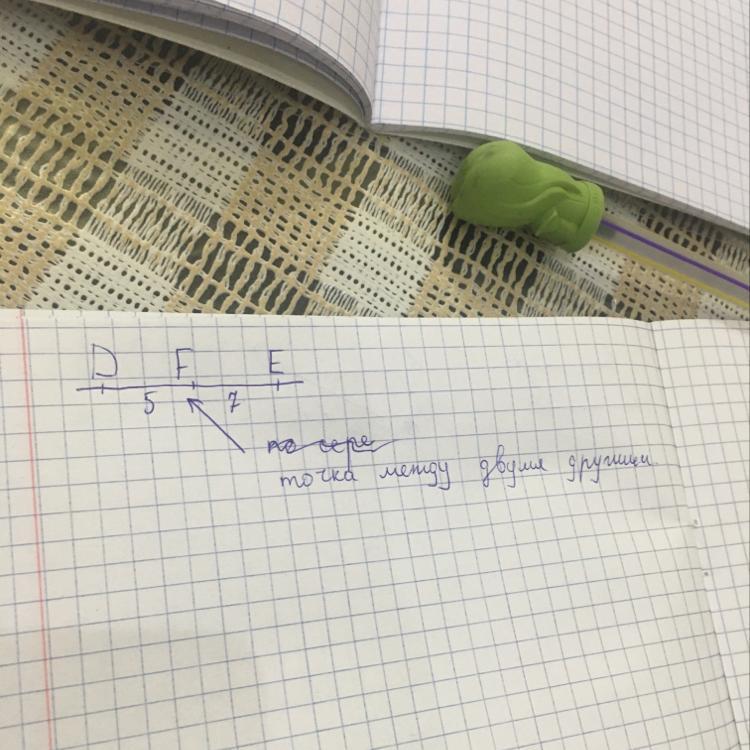 D F E
5 7
точка между двумя другими